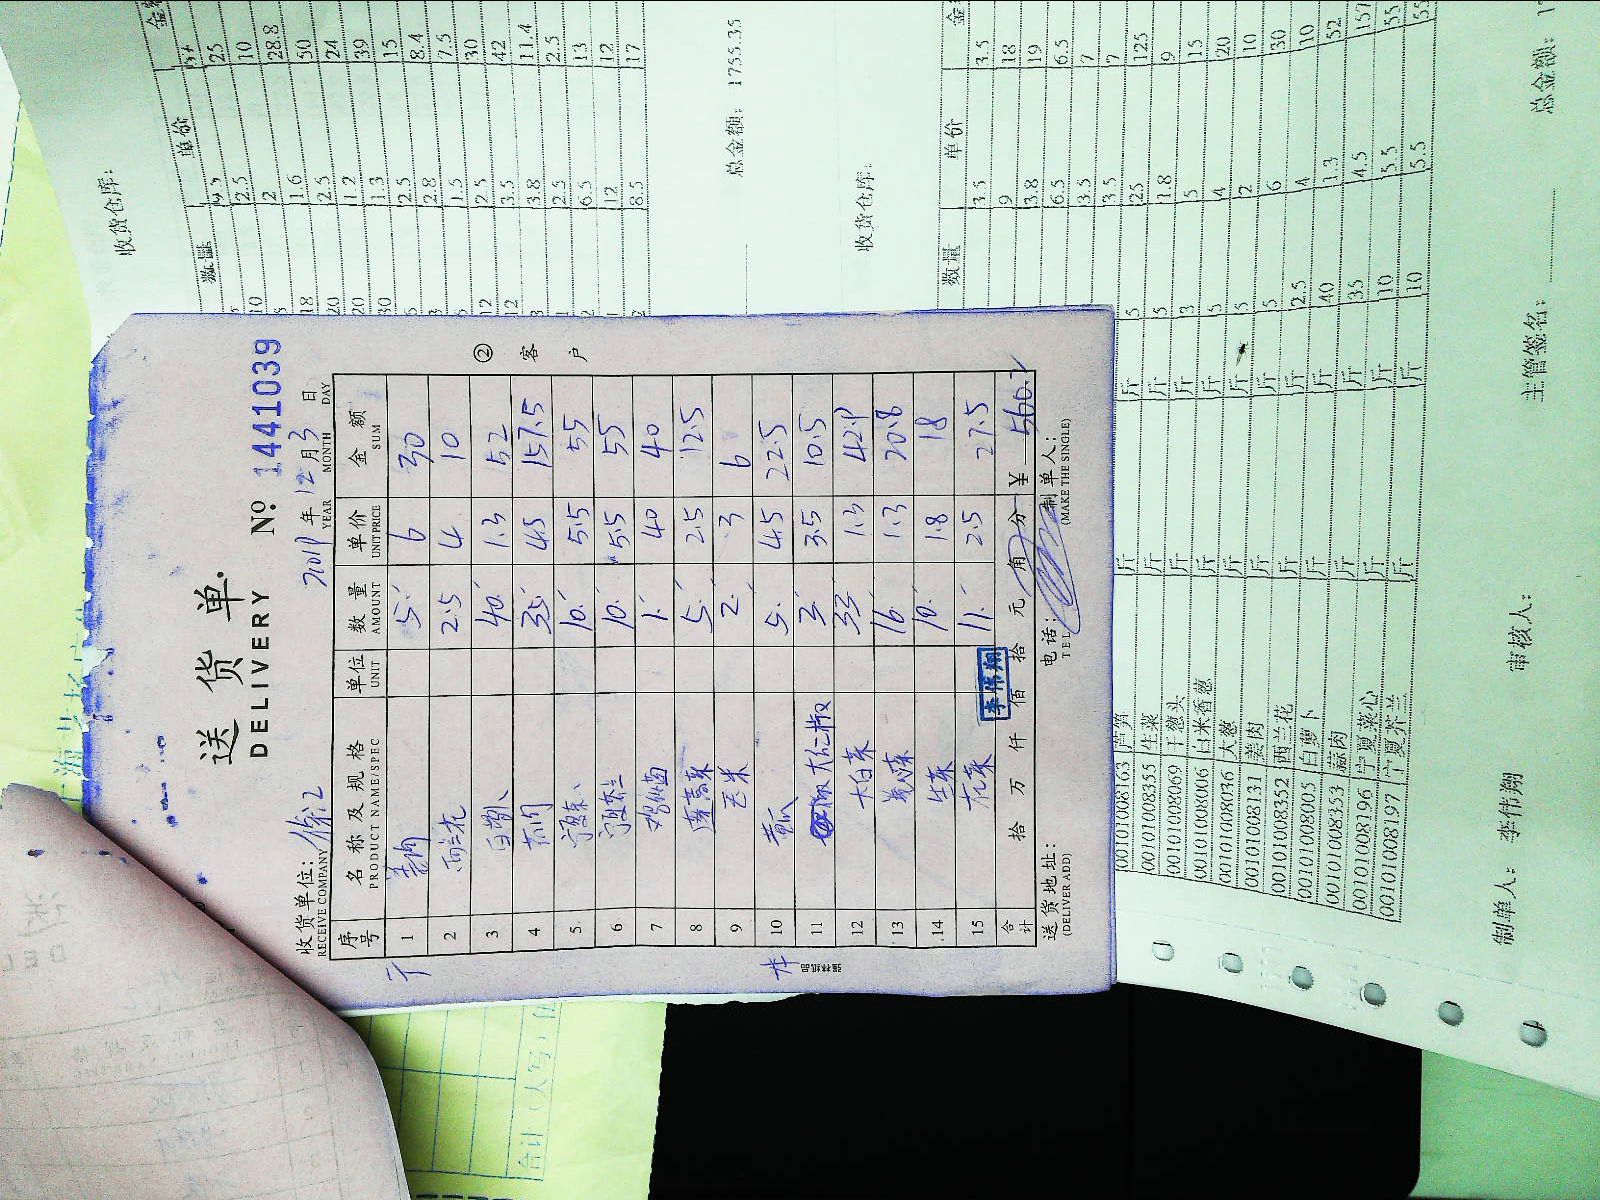 送 货 单
DELIVERY
№ 1441039
收货单位:
RECEIVE COMPANY
2019 年 12 月 3 日
YEAR MONTH DAY
序号 名 称 及 规 格 单位 数 量 单 价 金 额
PRODUCT NAME/SPEC UNIT AMOUNT UNIT PRICE SUM
1 姜肉 5 6 30
2 西兰花 2.5 4 10
3 白萝卜 40 1.3 52
4 蒜肉 35 4.5 157.5
5 10 5.5 55
6 10 5.5 55
7 1 40 40
8 茼蒿菜 5 2.5 12.5
9 2 3 6
10 黄瓜 5 4.5 22.5
11 大红椒 3 3.5 10.5
12 大白菜 33 1.3 42.9
13 16 1.3 20.8
14 生菜 10 1.8 18
15 花菜 11 2.5 27.5
合计 拾 万 仟 佰 拾 元 角 分 ¥ 560.2
李伟翔
送货地址:
(DELIVER ADD)
电话:
TEL
制单人:
(MAKE THE SINGLE)
② 客 户
收货仓库:
数量 单价
25
2.5 10
2 28.8
1.6 50
2.5 24
1.2 39
1.3 15
2.5 8.4
2.8 7.5
1.5 30
2.5 42
3.5 11.4
3.8 2.5
2.5 13
6.5 12
12 17
8.5
总金额: 1755.35
收货仓库:
数量 单价
3.5 3.5
9 18
3.8 19
6.5 6.5
3.5 7
3.5 7
00101008163 芦笋 斤 斤 5 25 125
00101008355 生菜 斤 斤 5 1.8 9
00101008069 干葱头 斤 斤 3 5 15
00101008006 白米香葱 斤 斤 5 4 20
00101008036 大葱 斤 斤 5 2 10
00101008131 姜肉 斤 斤 5 6 30
00101008352 西兰花 斤 斤 2.5 4 10
00101008005 白萝卜 斤 斤 40 1.3 52
00101008353 蒜肉 斤 斤 35 4.5 157
00101008196 宁夏菜心 斤 斤 10 5.5 55
00101008197 宁夏芥兰 斤 斤 10 5.5 55
制单人: 李伟翔
审核人:
主管签名:
总金额: 17
合计（大写）